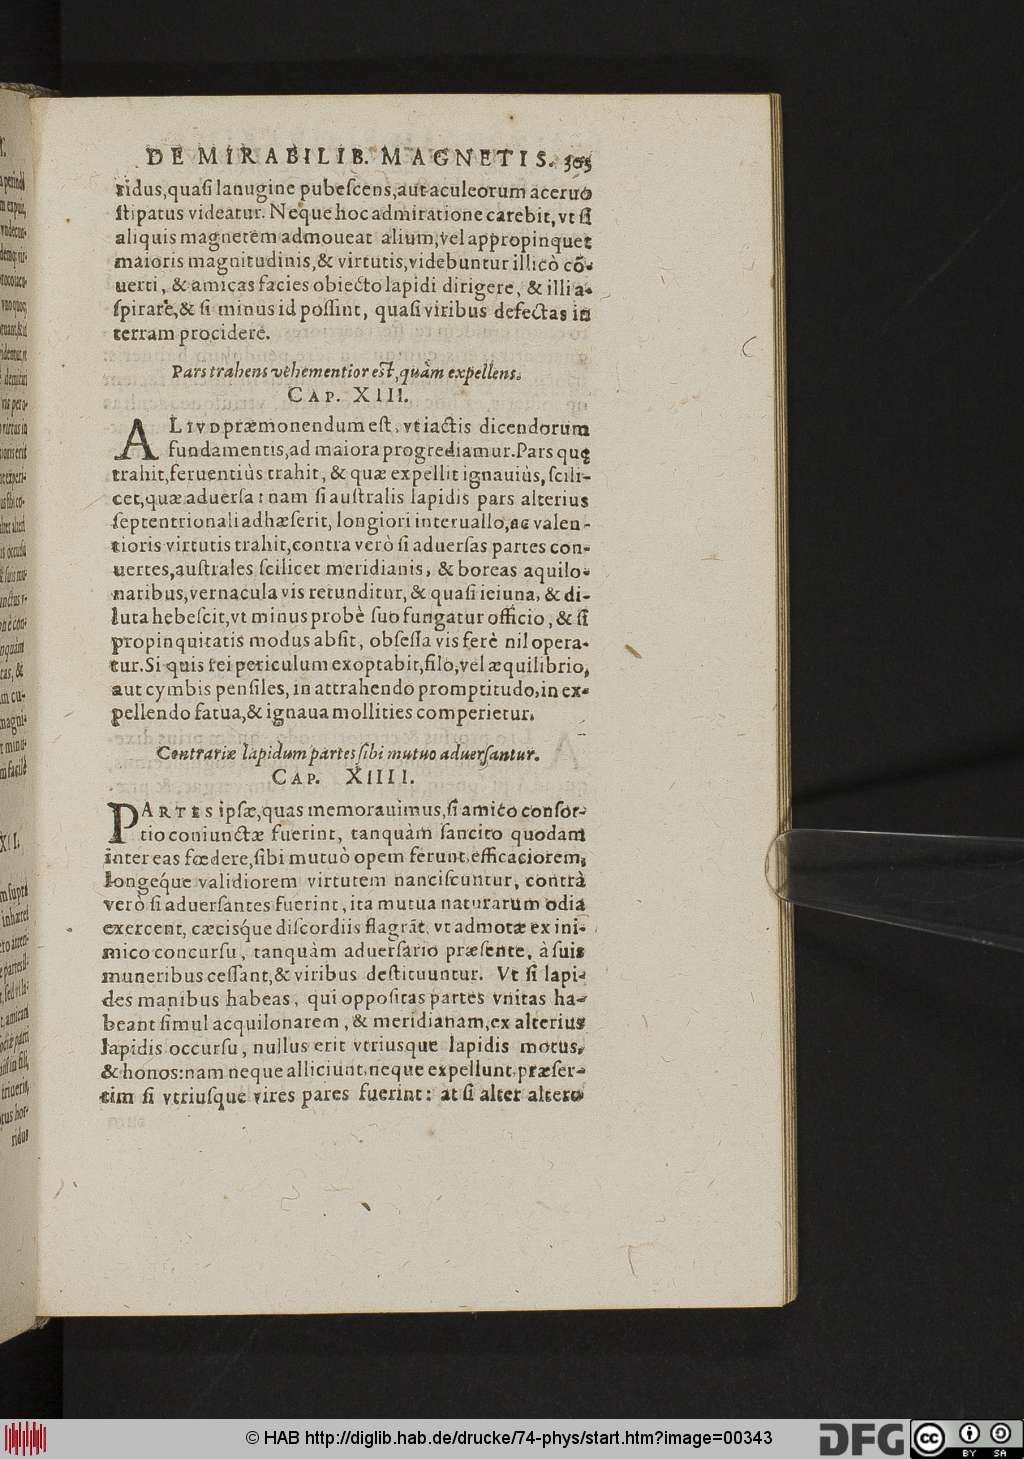 DE MIRABILIB. MAGNETIS. 305
ridus,quaſi lanugine pubeſcens,aut aculeorum aceruo
ſtipatus videatur. Neque hoc admiratione carebit, vt ſi
aliquis magnetem admoueat alium,vel appropinquet
maioris magnitudinis,& virtutis,videbuntur illicò cō-
uerti, & amicas facies obiecto lapidi dirigere, & illi a-
ſpirare,& ſi minus id poſſint, quaſi viribus defectas in
terram procidere.
Pars trahens vehementior eſt, quàm expellens.
CAP. XIII.
ALIVD præmonendum eſt, vt iactis dicendorum
fundamentis,ad maiora progrediamur. Pars quę
trahit,feruentiùs trahit, & quæ expellit ignauiùs, ſcili-
cet,quæ aduerſa: nam ſi auſtralis lapidis pars alterius
ſeptentrionali adhæſerit, longiori interuallo,ac valen-
tioris virtutis trahit,contra verò ſi aduerſas partes con-
uertes,auſtrales ſcilicet meridianis, & boreas aquilo-
naribus,vernacula vis retunditur, & quaſi ieiuna, & di-
luta hebeſcit,vt minus probè ſuo fungatur officio, & ſi
propinquitatis modus abſit, obſeſſa vis ferè nil opera-
tur.Si quis rei periculum exoptabit,filo,vel æquilibrio,
aut cymbis penſiles, in attrahendo promptitudo,in ex-
pellendo fatua,& ignaua mollities comperietur.
Contrariæ lapidum partes ſibi mutuo aduerſantur.
CAP. XIIII.
PARTES ipſæ,quas memorauimus,ſi amico conſor-
tio coniunctæ fuerint, tanquàm ſancito quodam
inter eas fœdere,ſibi mutuò opem ferunt, efficaciorem,
longeq́ue validiorem virtutem nanciſcuntur, contrà
verò ſi aduerſantes fuerint, ita mutua naturarum odia
exercent, cæciſq́ue diſcordiis flagrāt, vt admotæ ex ini-
mico concurſu, tanquàm aduerſario præſente, à ſuis
muneribus ceſſant,& viribus deſtituuntur. Vt ſi lapi-
des manibus habeas, qui oppoſitas partes vnitas ha-
beant ſimul acquilonarem, & meridianam,ex alterius
lapidis occurſu, nullus erit vtriusque lapidis motus,
& honos:nam neque alliciunt, neque expellunt, præſer-
tim ſi vtriuſque vires pares fuerint: at ſi alter altero
© HAB http://diglib.hab.de/drucke/74-phys/start.htm?image=00343
DFG
cc
BY SA